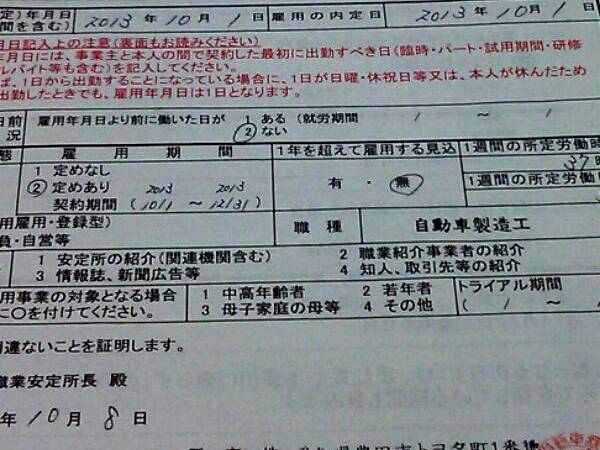 定)年月日 2013年10月1日 雇用の内定日 2013年10月1日
間を含む)
月日記入上の注意(裏面もお読みください)
年月日には、事業主と本人の間で契約した最初に出勤すべき日(臨時・パート・試用期間・研修
ルバイト等も含む)を記入してください。
ば、1日から出勤することになっている場合に、1日が日曜・休祝日等又は、本人が休んだため
出勤したときでも、雇用年月日は1日となります。
日前 雇用年月日より前に働いた日が 1 ある (就労期間 / ~ /
況 2 ない
態 雇用期間 1年を超えて雇用する見込 1週間の所定労働時
1 定めなし 37
② 定めあり 2013 2013 有・無 1週間の所定労働
契約期間 (10/1 ~ 12/31)
用雇用・登録型) 職種 自動車製造工
負・自営等
1 安定所の紹介(関連機関含む) 2 職業紹介事業者の紹介
3 情報誌、新聞広告等 4 知人、取引先等の紹介
用事業の対象となる場合 1 中高年齢者 2 若年者 トライアル期間
に○を付けてください。 3 母子家庭の母等 4 その他 ( / ~
違ないことを証明します。
職業安定所長 殿
年10月8日
豊田市トヨタ町1番地